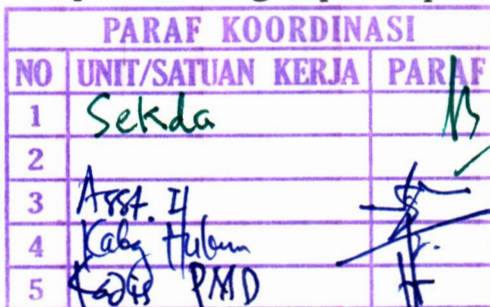 PARAF KOORDINASI
NO UNIT/SATUAN KERJA PARAF
1 Sekda
2
3 Asst. II
4 Kabag Hukum
5 Kadis PMD